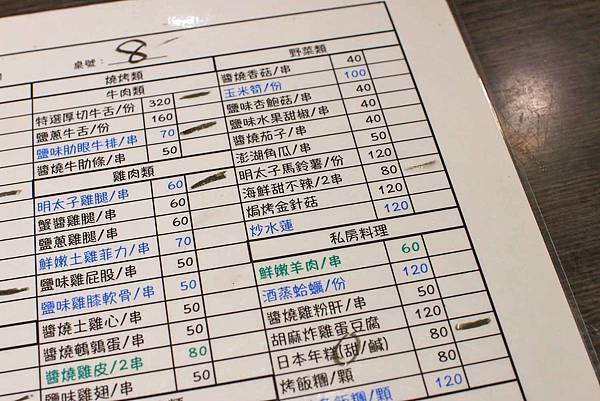 桌號： 8
燒烤類
牛肉類
特選厚切牛舌/份 320
鹽蔥牛舌/份 160
鹽味肋眼牛排/串 70
醬燒牛肋條/串 50
雞肉類
明太子雞腿/串 60
蟹醬雞腿/串 60
鹽蔥雞腿/串 60
鮮嫩土雞菲力/串 70
鹽味雞屁股/串 50
鹽味雞膝軟骨/串 50
醬燒土雞心/串 50
醬燒鵪鶉蛋/串 50
醬燒雞皮/2串 80
鹽味雞翅/串 50
野菜類
醬燒香菇/串 40
玉米筍/份 100
鹽味杏鮑菇/串 40
鹽味水果甜椒/串 40
醬燒茄子/串 50
澎湖角瓜/串 120
明太子馬鈴薯/份 120
海鮮甜不辣/2串 80
焗烤金針菇 120
炒水蓮 120
私房料理
鮮嫩羊肉/串 60
酒蒸蛤蠣/份 120
醬燒雞粉肝/串 50
胡麻炸雞蛋豆腐 120
日本年糕(甜/鹹) 80
烤飯糰/顆 80
飯糰/顆 120